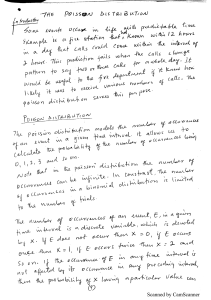 THE POISSON DISTRIBUTION
Introduction
Some events occur in life with predictable time
Example is a fire station that, known within 12 hours
in a day that calls could come within the interval of
2 hours. This prediction fails when the calls change
pattern to say two or three calls for a whole day. It
would be useful to the fire department if it knew how
likely it was to receive various numbers of calls. The
poisson distribution serves this purpose.
POISSON DISTRIBUTION
The poisson distribution models the number of occurrences
of an event in a given time interval. It allows us to
calculate the probability of the number of occurrences being
0, 1, 2, 3 and so on.
Note that in the poisson distribution the number of
occurrences can be infinite. In contrast, the number
of occurrences in a binomial distribution is limited
by the number of trials.
The number of occurrences of an event, E, in a given
time interval is a discrete variable, which is denoted
by X. If E does not occur then X = 0, if E occurs
once then X = 1, if E occurs twice then X = 2 and
so on. If the occurrence of E in any time interval is
not affected by its occurrence in any preceding interval,
then the probability of X having a particular value can
(1)
Scanned by CamScanner